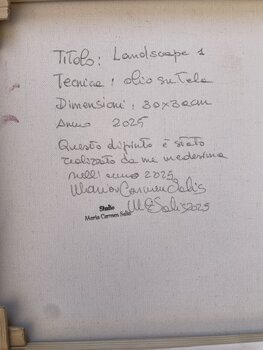 Titolo: Landscape 1
Tecnica: olio su tela
Dimensioni: 30x30cm
Anno 2025
Questo dipinto è stato
realizzato da me medesima
nell'anno 2025
Maria Carmen Salis
Studio
Maria Carmen Salis
MCSalis 2025